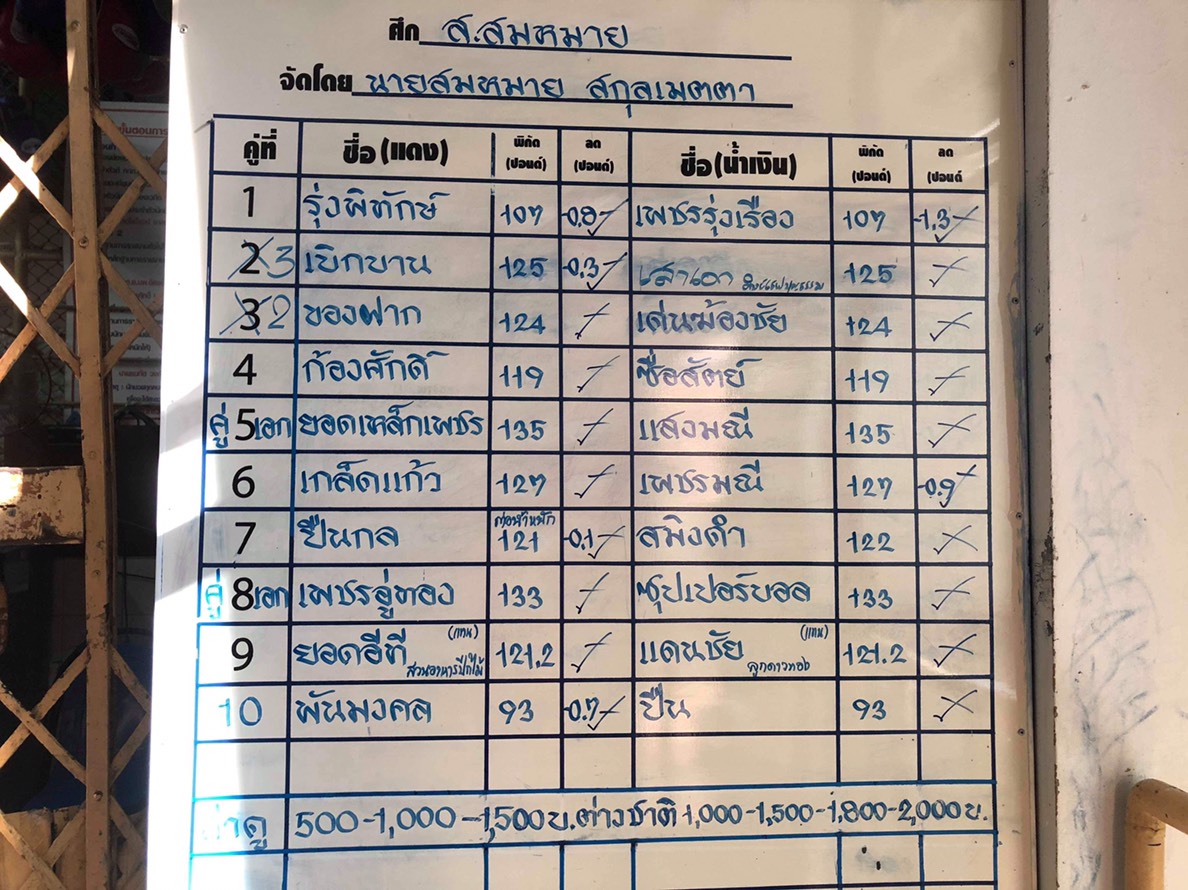 ศึก ส.สมหมาย
จัดโดย นายสมหมาย สกุลเมตตา
คู่ที่ ชื่อ(แดง) พิกัด (ปอนด์) ลด (ปอนด์) ชื่อ(น้ำเงิน) พิกัด (ปอนด์) ลด (ปอนด์
1 รุ่งพิทักษ์ 107 -0.8 เพชรรุ่งเรือง 107 -1.3
2 3 เบิกบาน 125 -0.3 เสาเอก 125
3 2 ของฝาก 124 เด่นฆ้องชัย 124
4 ก้องศักดิ์ 119 ซื่อสัตย์ 119
คู่ 5 เอก ยอดเหล็กเพชร 135 แสงมณี 135
6 เกล็ดแก้ว 127 เพชรมณี 127 -0.9
7 ปืนกล ต่อน้ำหนัก 121 -0.1 สมิงดำ 122
คู่ 8 เอก เพชรอู่ทอง 133 ซุปเปอร์บอล 133
9 ยอดอีที (แทน) สวนอาหารปีกไม้ 121.2 แดนชัย (แทน) ลูกดาวทอง 121.2
10 พันมงคล 93 -0.7 ปืน 93
ค่าดู 500-1,000-1,500บ. ต่างชาติ 1,000-1,500-1,800-2,000บ.